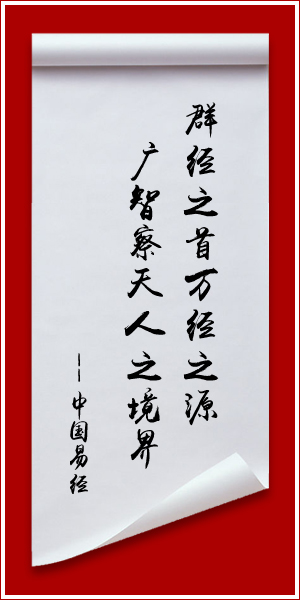 群经之首万经之源
广智察天人之境界
——中国易经